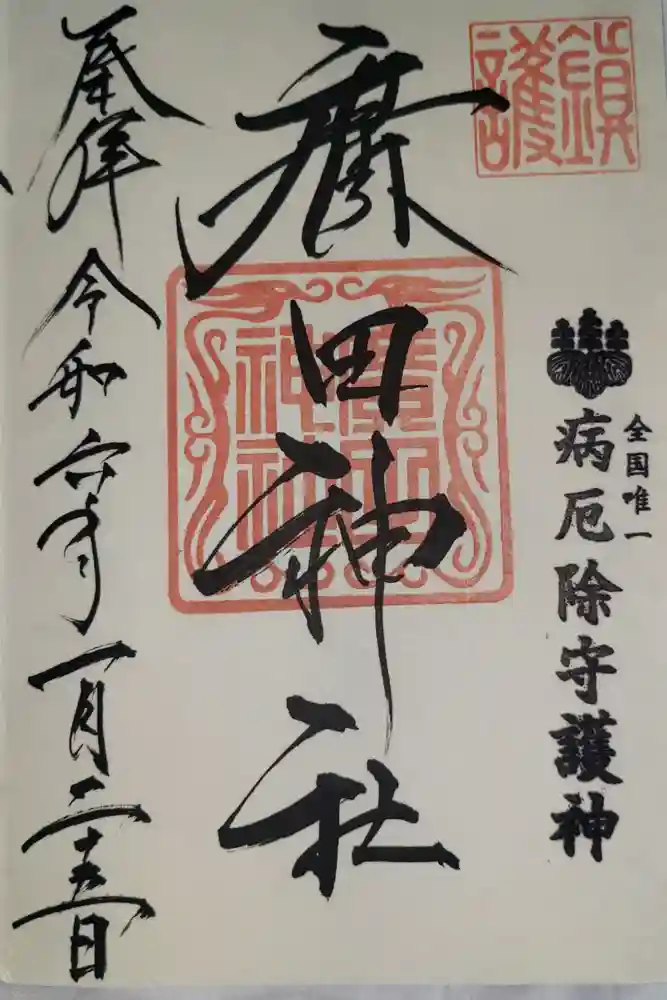 鎭護
全国唯一
病厄除守護神
廣田神社
廣田神社
奉拝 令和六年一月二十五日